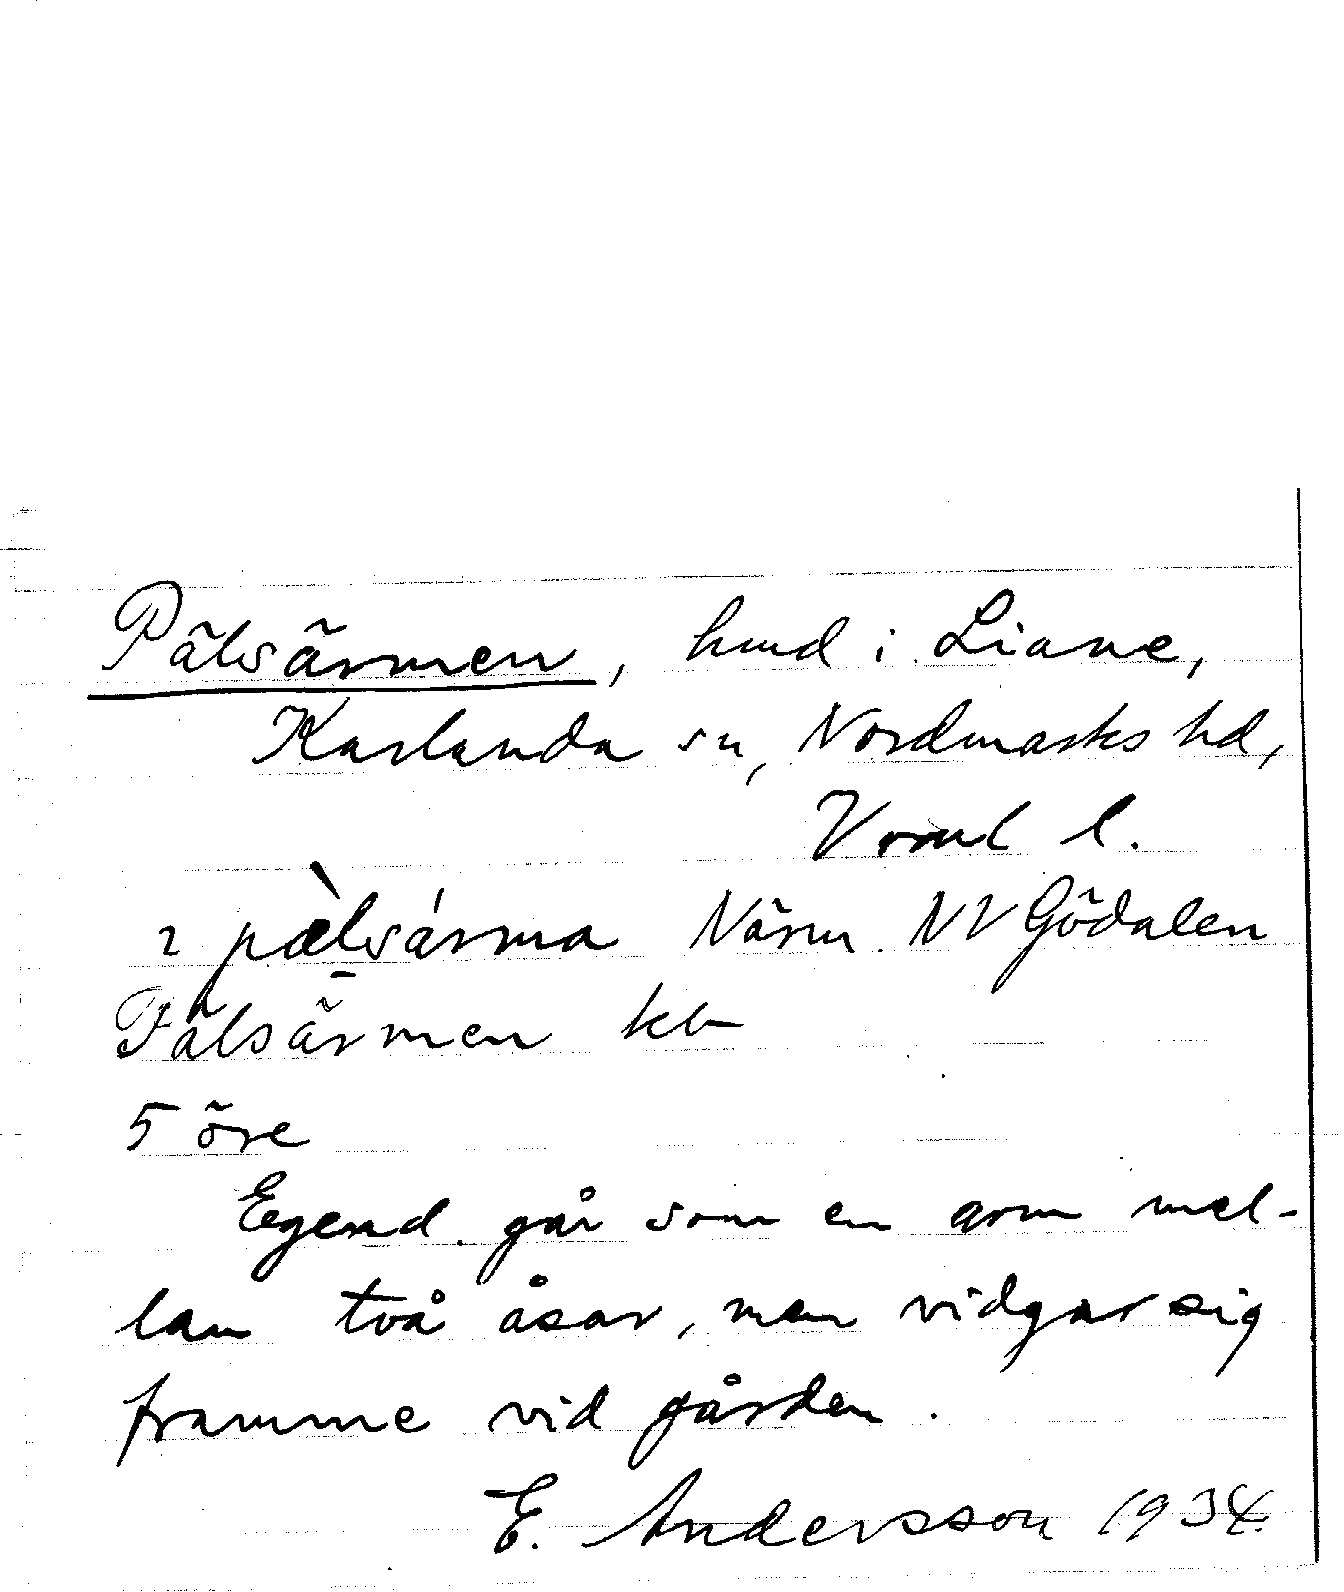 Pälsärmen, hmd i Liane,
Karlanda sn, Nordmarks hd,
Vrml l.
2 pæ̀lsárma Närm NV Gödalen
Pälsärmen kb
5 öre
Egend. går som en arm mel-
lan två åsar, men vidgar sig
framme vid gården.
E. Andersson 1934.